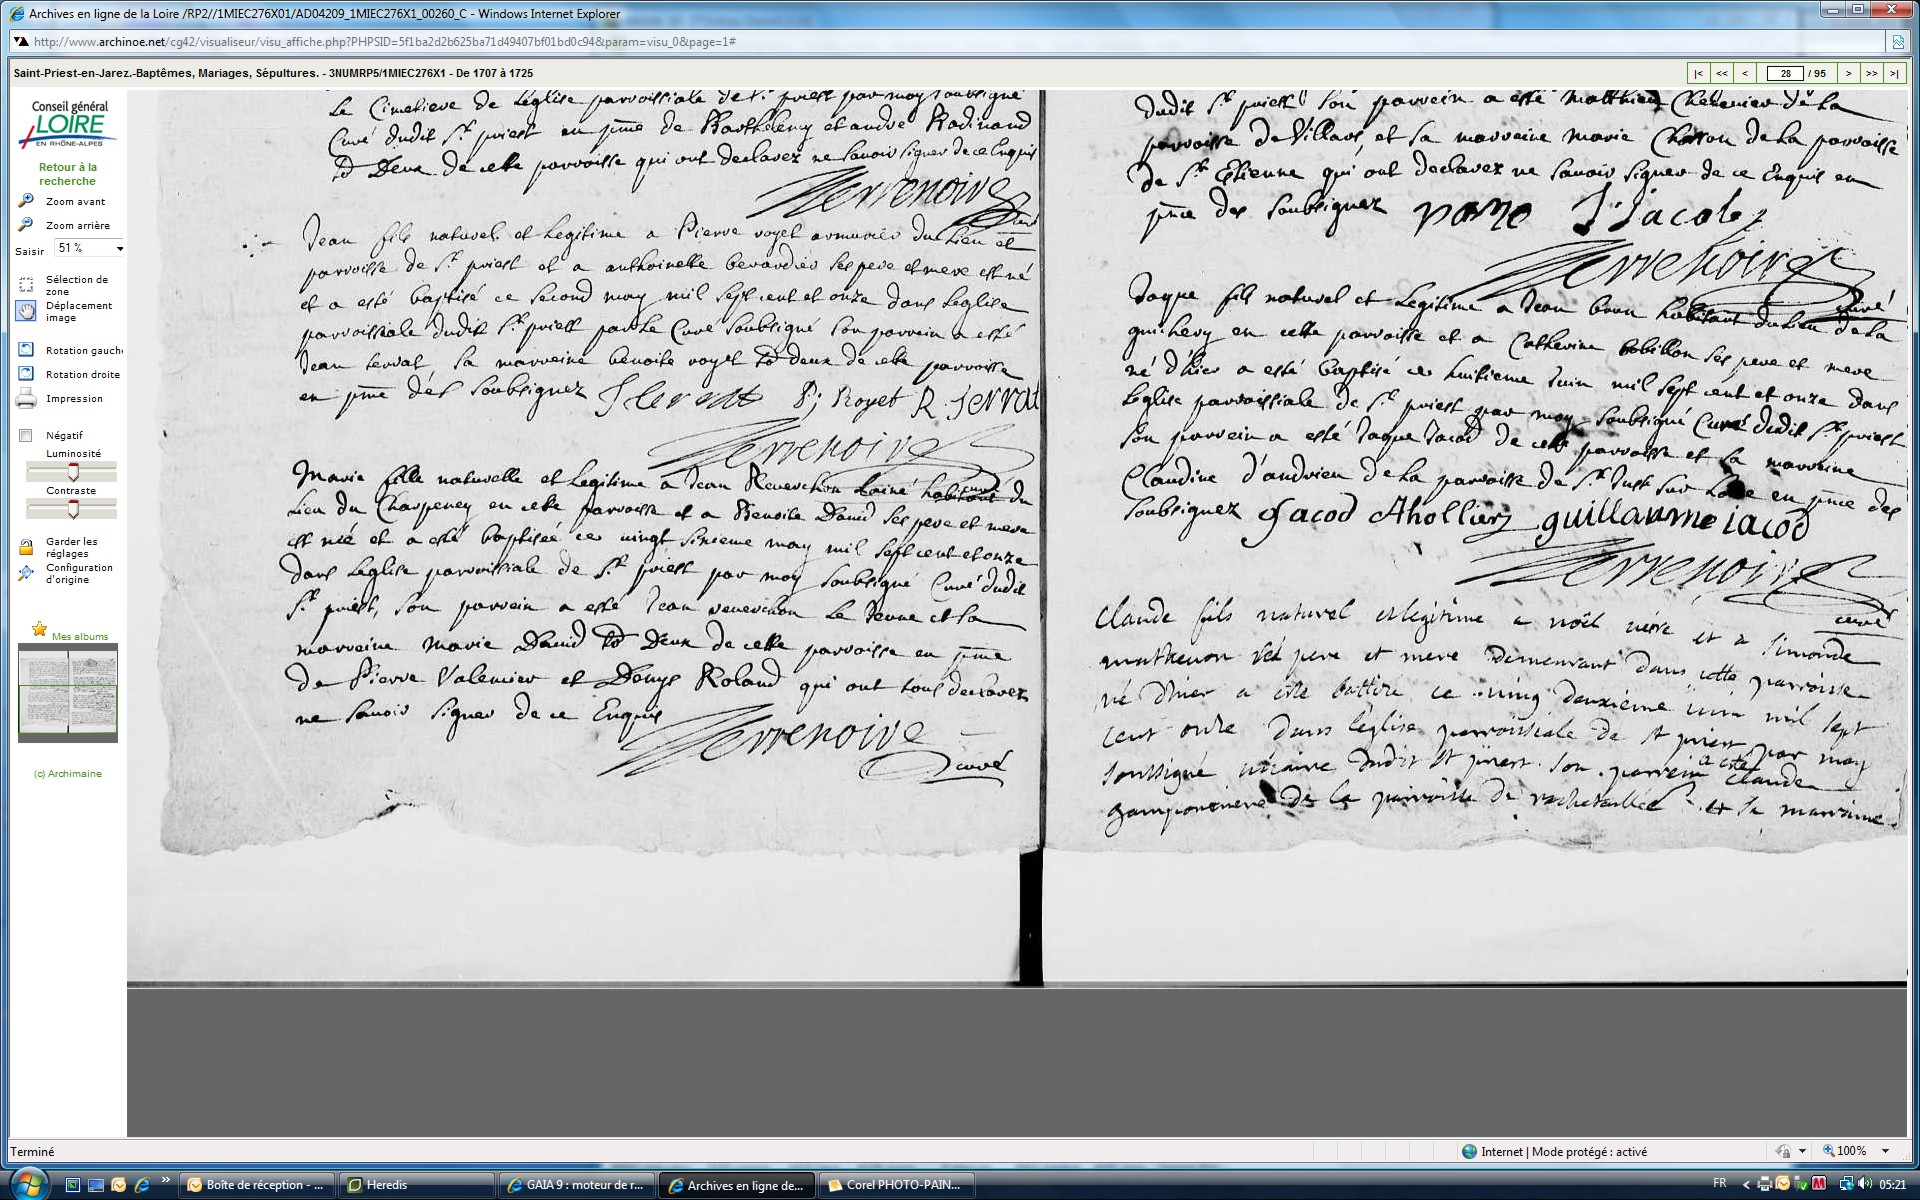 Archives en ligne de la Loire /RP2//1MIEC276X01/AD04209_1MIEC276X1_00260_C - Windows Internet Explorer
http://www.archinoe.net/cg42/visualiseur/visu_affiche.php?PHPSID=5f1ba2d2b625ba71d49407bf01bd0c94&param=visu_0&page=1#
Saint-Priest-en-Jarez.-Baptêmes, Mariages, Sépultures. - 3NUMRP5/1MIEC276X1 - De 1707 à 1725
|< << < 28 / 95 > >> >|
Conseil général
LOIRE
EN RHÔNE-ALPES
Retour à la
recherche
Zoom avant
Zoom arrière
Saisir 51 %
Sélection de
zone
Déplacement
image
Rotation gauch
Rotation droite
Impression
Négatif
Luminosité
Contraste
Garder les
réglages
Configuration
d'origine
Mes albums
(c) Archimaine
Le Cimetiere de Leglise parroissiale de St priest par moy soubsigné
Curé dudit St priest en pnce de Barthelemy et andre Radinand
to Deux de cette parroisse qui ont declarez ne Savoir Signer de ce Enquis
Terrenoire
curé
Jean fils naturel et Legitime a Pierre royet armurier du Lieu et
parroisse de St priest et a anthoinette berardier Ses pere et mere est né
et a esté baptisé ce Second may mil Sept cent et onze dans Leglise
parroissiale dudit St priest par Le Curé Soubsigné Son parrein a esté
Jean Serrat, Sa marreine benoite royet to deux de cette parroisse
en pnce des Soubsignez JSerrat P; Royet R. Serrat
Terrenoire
curé
Marie fille naturelle et Legitime a Jean Reverchon Lainé habitant du
Lieu du Charpeney en cette parroisse et a Benoite David Ses pere et mere
est née et a esté baptisée ce vingt Sixieme may mil Sept cent et onze
dans Leglise parroissiale de St priest par moy Soubsigné Curé dudit
St priest, Son parrein a esté Jean reverchon Le Jeune et Sa
marreine Marie David to Deux de cette parroisse en pnce
de Pierre Valencier et Denys Roland qui ont tous declarez
ne Savoir Signer de ce Enquis
Terrenoire
curé
dudit St priest Son parrein a esté Matthieu Chevenier de La
parroisse de Villars, et Sa marreine marie Chosson de La parroisse
de St Etienne qui ont declarez ne Savoir Signer de ce Enquis en
pnce des Soubsignez J Jacob
Terrenoire
curé
Jaque fils naturel et Legitime a Jean habitant du Lieu de La
en cette parroisse et a Catherine Ses pere et mere
né d'hier a esté baptisé ce huitieme Juin mil Sept cent et onze dans
Leglise parroissiale de St priest par moy Soubsigné Curé dudit St priest
Son parrein a esté Jaque Jacod de cette parroisse et Sa marreine
Claudine d'andrieu de La parroisse de St Just Sur Loire en pnce des
Soubsignez Jacod AhollierJ guillaume iacod
Terrenoire
curé
Claude fils naturel et legitime a noël et a Simonde
matheuon ses pere et mere demeurant dans cette parroisse
né d'hier a este battizé ce ving deuxième iuin mil sept
cent onze dans leglise parroissiale de st priest par moy
soussigné vicaire dudit st priest. son parrein a esté claude
de la parroisse de rochetaillée et sa marraine
Terminé
Internet | Mode protégé : activé
100%
Boîte de réception - ...
Heredis
GAIA 9 : moteur de r...
Archives en ligne de...
Corel PHOTO-PAIN...
FR
05:21